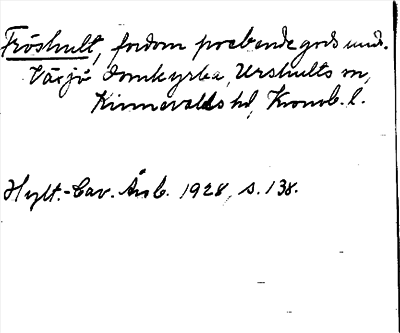 Fröshult, fordom prebendegods und.
Växjö domkyrka, Urshults sn,
Kinnevalds hd, Kronob. l.
Hylt.-Cav. Årsb. 1928, s. 138.